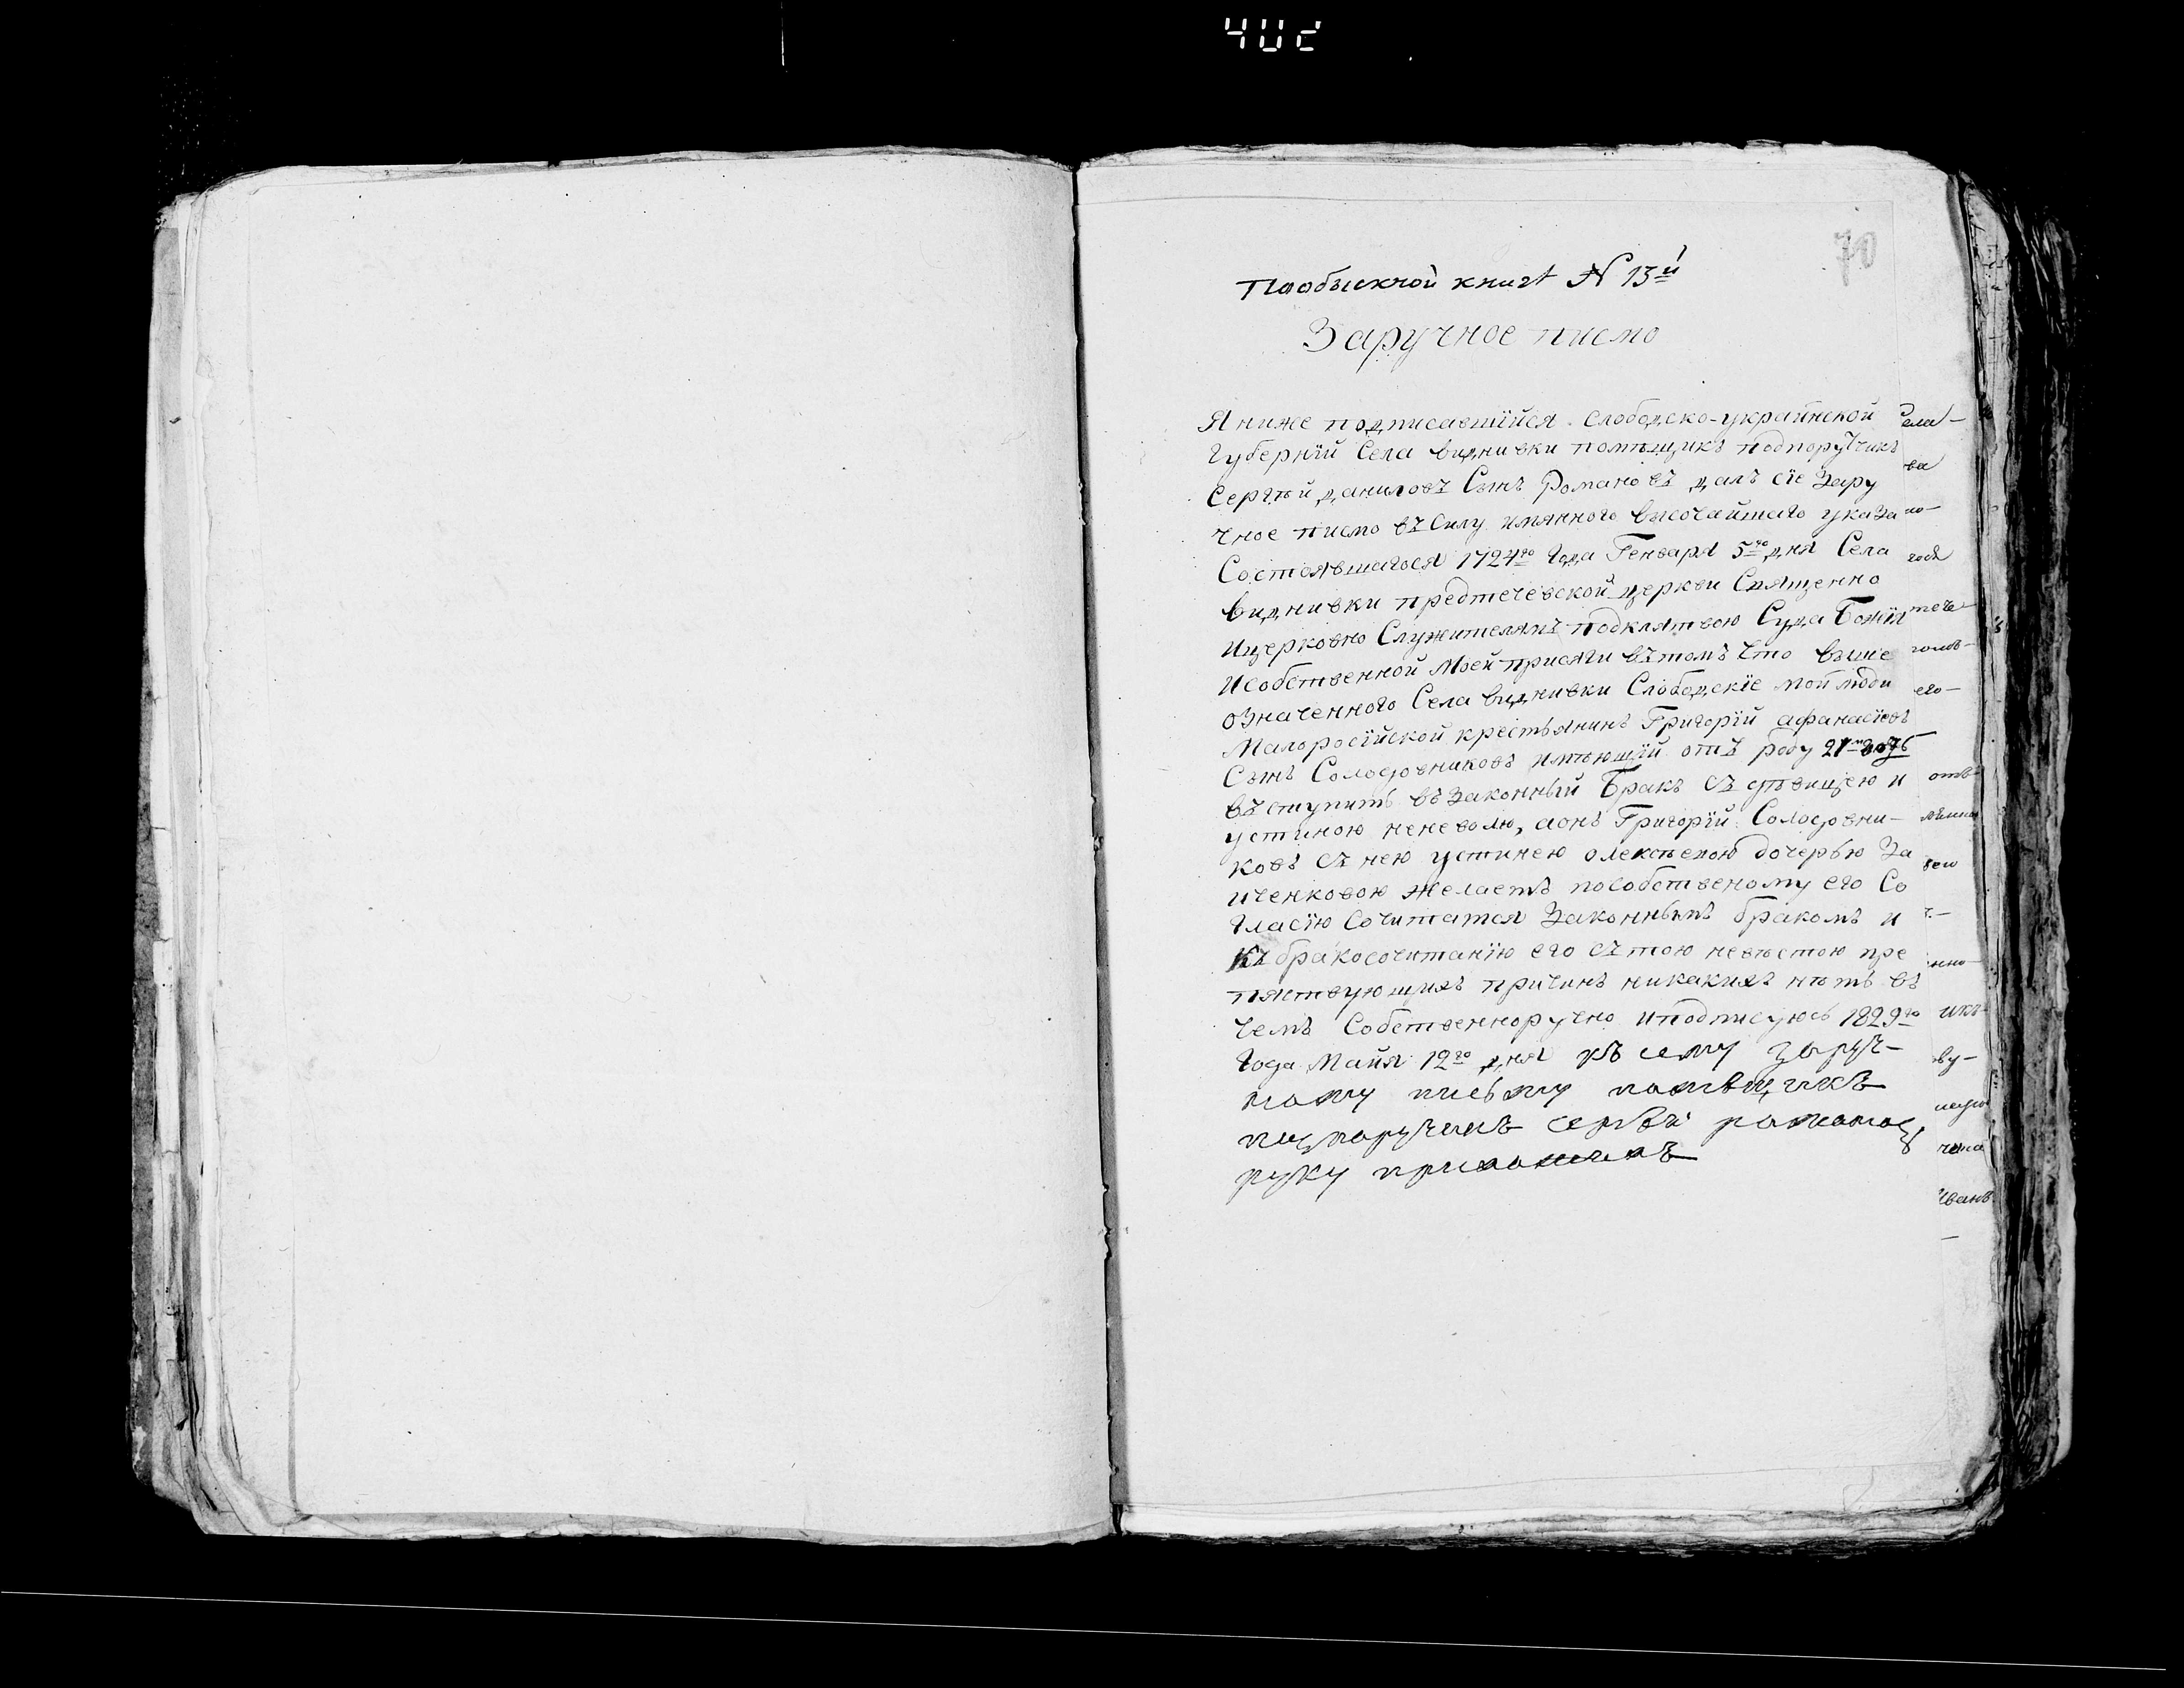 402
70
Пообыскной книгѣ N 13й
Заручное писмо
Я ниже подписавшїйся Слободско-украинской
Губернїй Села виднивки помѣщикъ подпоручикъ
Сергѣй даниловъ Сынъ Романовъ далъ сїе Зару
чное писмо въ Силу имянного высочайшаго указа
Состоявшагося 1724го Года Генваря 5го дня Села
виднивки предтечевской церкви Священно
Ицерковно Служителямъ подклятвою Суда Божїя
Исобственной Моей присяги вътомъ Что выше
означенного Села виднивки Слободскїе мои люди
Малоросїйской крестьянинъ Григорїй афанасїевъ
Сынъ Солодовниковъ имѣющїй отъ роду 21
въступить въ Законный Бракъ Съ дѣвицею и
устиною неневолю, аонъ Григорїй Солодовни-
ковъ Съ нею устинею олексѣевою дочерью За
иченковою желаетъ пособственому его Со
гласїю Сочитатся Законнымъ бракомъ и
Къ бракосочитанїю его Съ тою невѣстою пре
пятствующихъ причинъ никакихъ нѣтъ въ
Чемъ Собственноручно иподписуюсь 1829го
Года Майя 12го дня къ сему заруч-
ному письму помѣщикъ
подпоручикъ сергѣй романов
руку приложилъ